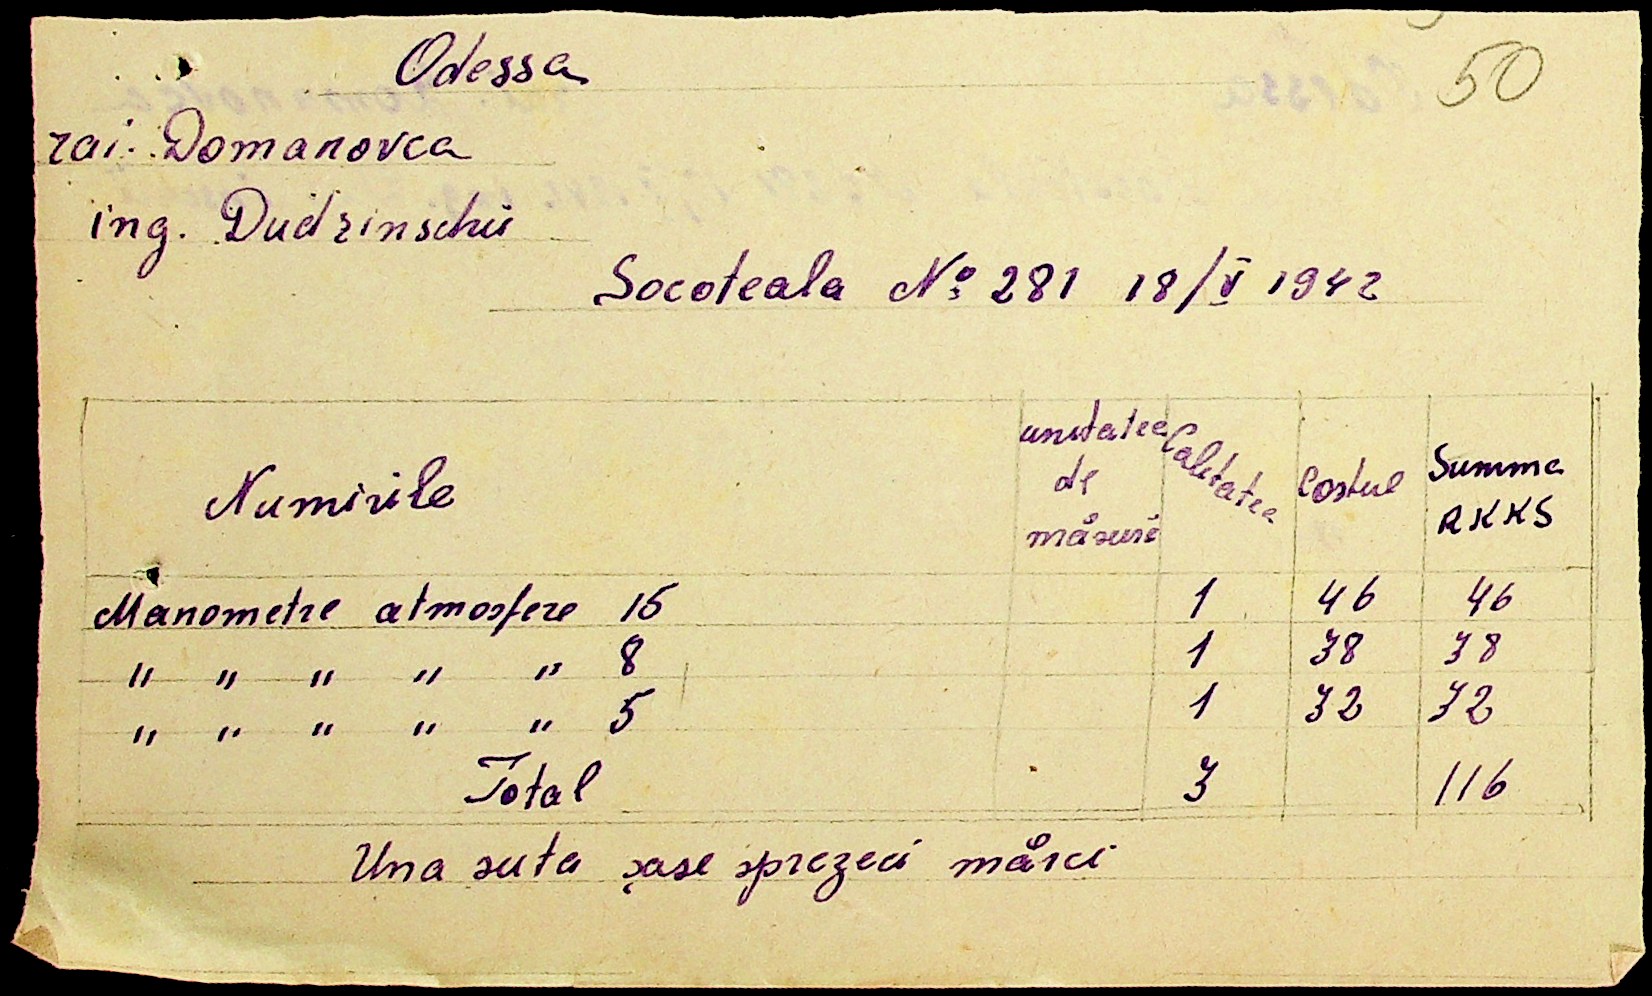 Odessa
50
rai. Domanovca
ing. Dudzinschii
Socoteala № 281 18/V 1942
Numirile
unitatea de măsuri
Calitatea
Costul
Summa RKKS
Manometre atmosfere 16 1 46 46
" " " " " 8 1 38 38
" " " " " 5 1 32 32
Total 3 116
Una suta șase sprezeci mărci